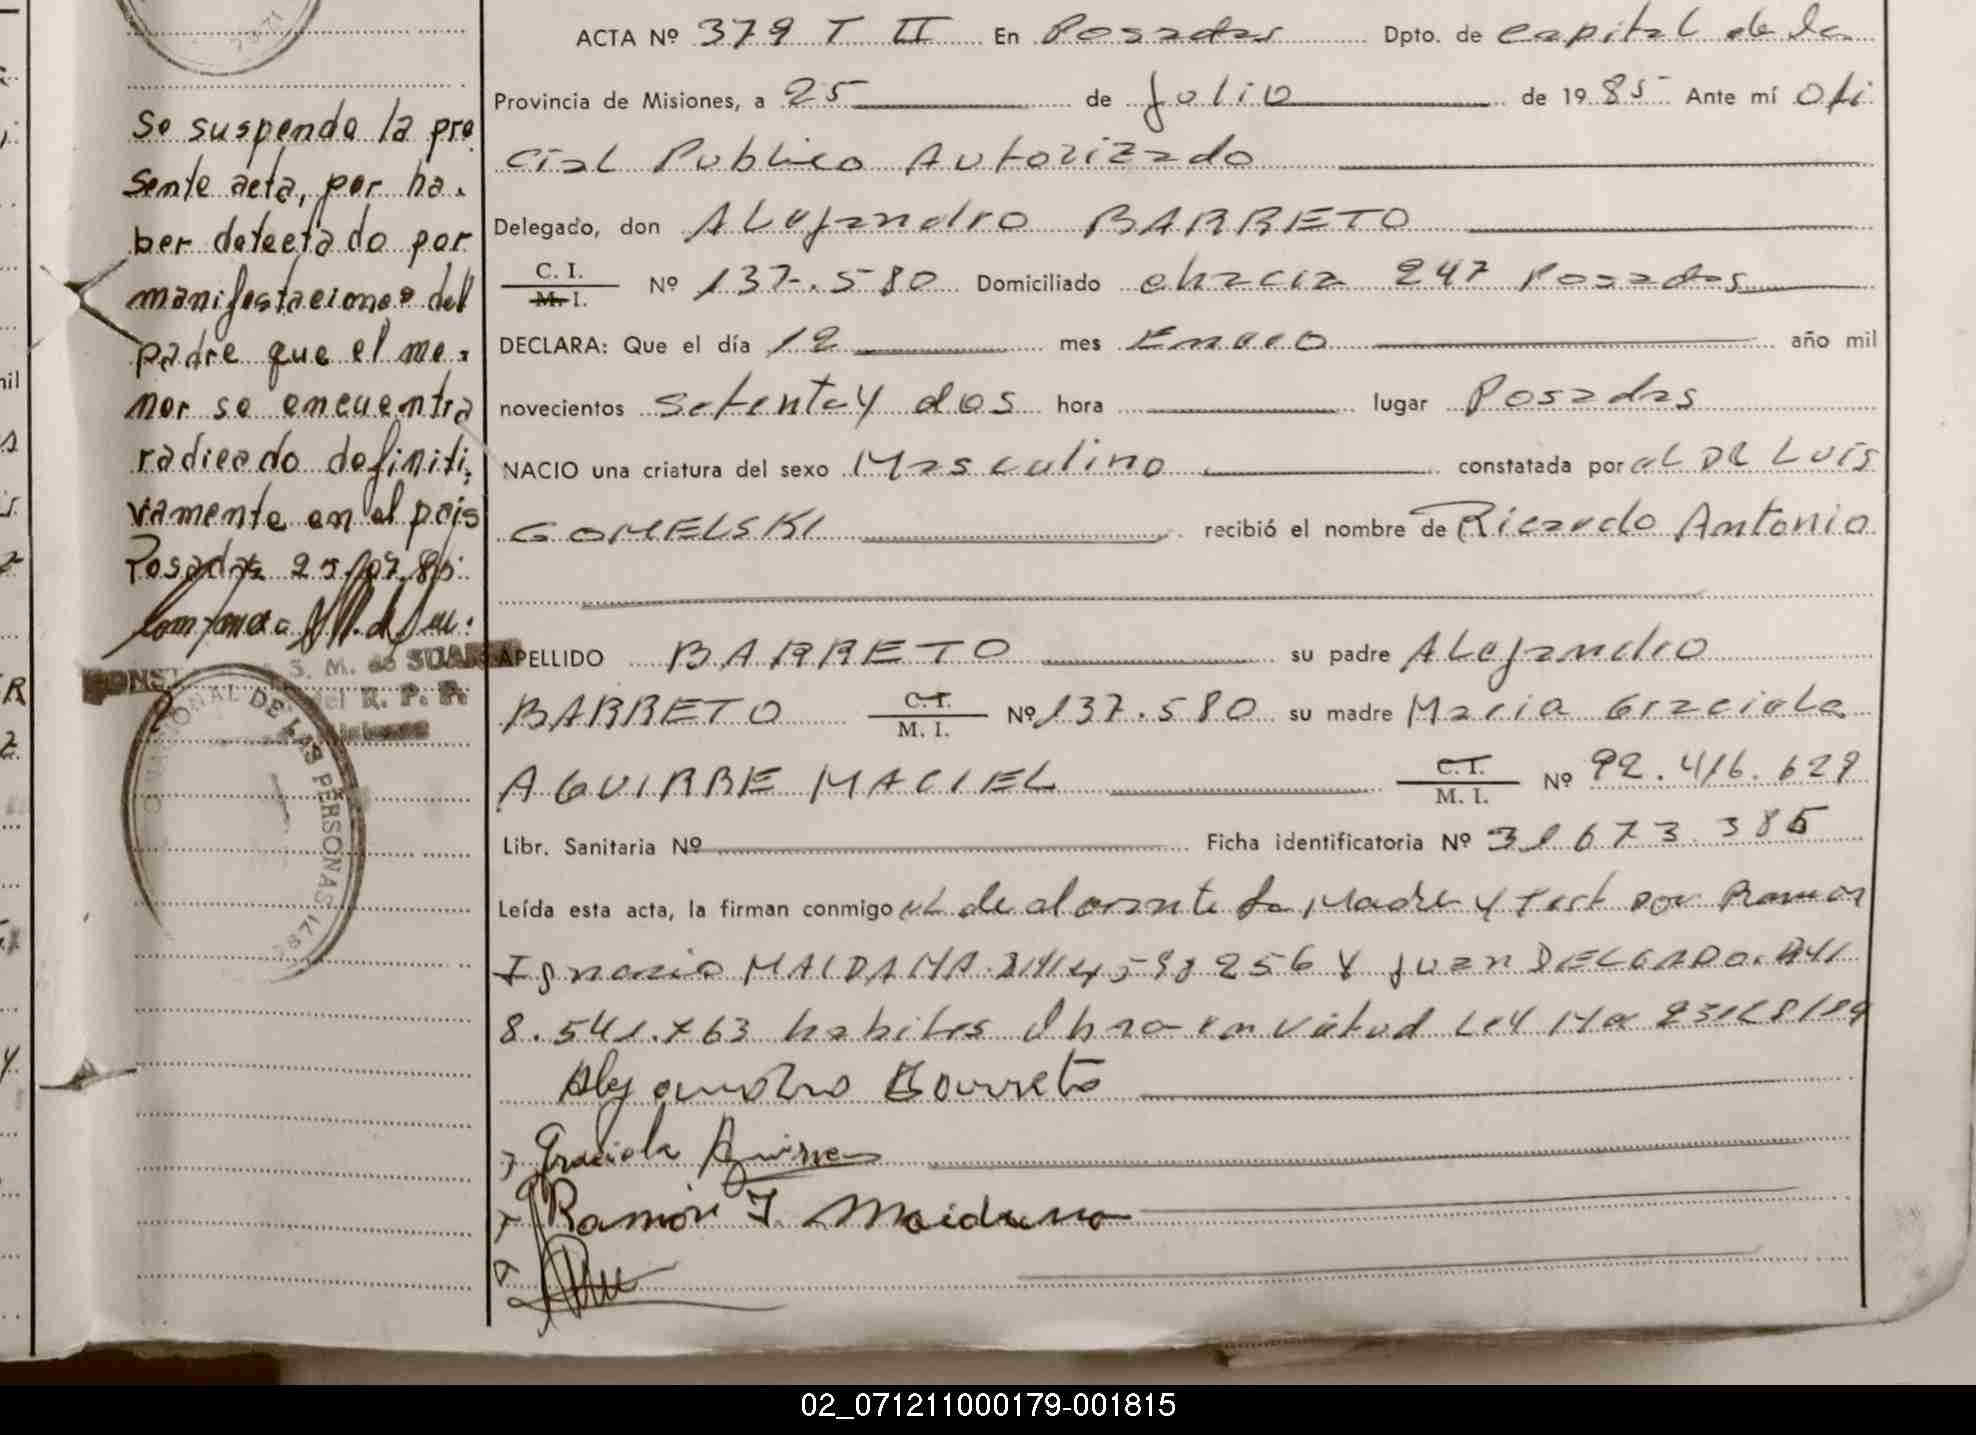 Se suspende la pre
sente acta, por ha.
ber detectado por
manifestaciones del
padre que el me.
nor se encuentra
radicado definiti.
vamente en el pais
Posadas 25.07.85.
S. M. de SUAR
del R. P. P.
Misiones
ONAL DE LAS PERSONAS
ACTA Nº 379 T II En Posadas Dpto. de Capital de la
Provincia de Misiones, a 25 de Julio de 1985 Ante mí Ofi
cial Publico Autorizado
Delegado, don Alejandro BARRETO
C. I.
M. I. Nº 137.580 Domiciliado chacra 247 Posadas
DECLARA: Que el día 12 mes Enero año mil
novecientos setenta y dos hora lugar Posadas
NACIO una criatura del sexo Masculino constatada por el DR Luis
GOMELSKI recibió el nombre de Ricardo Antonio
APELLIDO BARRETO su padre Alejandro
BARRETO C. I.
M. I. Nº 137.580 su madre Maria Graciela
AGUIRRE MACIEL C. I.
M. I. Nº 92.416.629
Libr. Sanitaria Nº Ficha identificatoria Nº 31673.385
Leída esta acta, la firman conmigo el declarante la Madre y test Ramon
Ignacio MAIDANA y Juan DELGADO
8.541.763 habiles en virtud Ley
Alejandro Barreto
Graciela Aguirre
Ramón I. Maidana
02_071211000179-001815